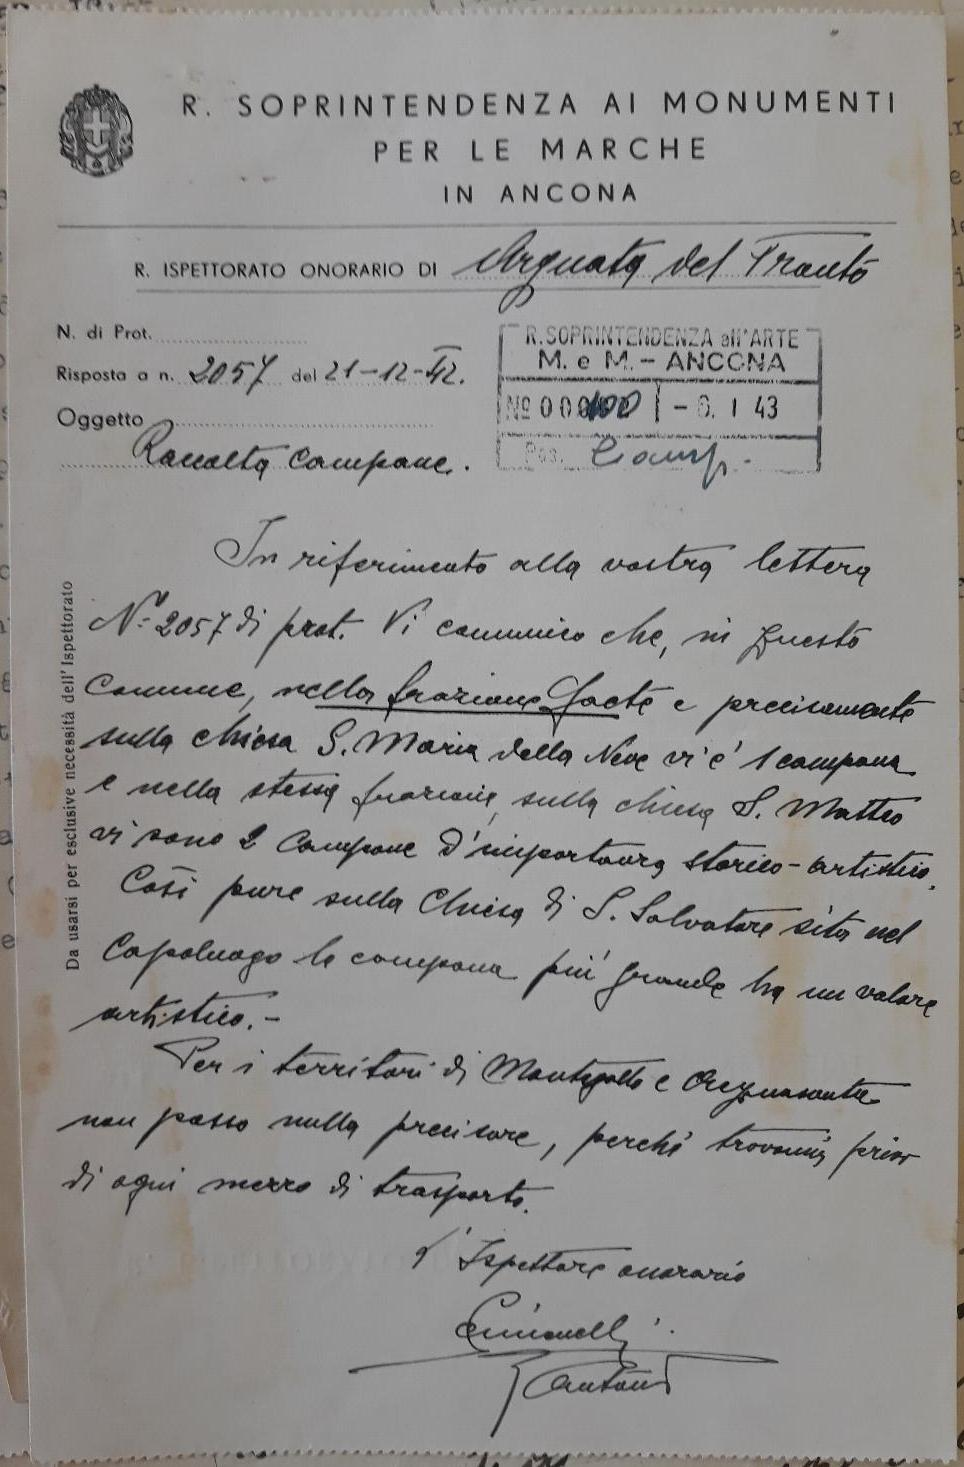 R. SOPRINTENDENZA AI MONUMENTI
PER LE MARCHE
IN ANCONA
R. ISPETTORATO ONORARIO DI Arquata del Tronto
N. di Prot.
Risposta a n. 2057 del 21-12-42.
Oggetto
Raccolta campane.
R. SOPRINTENDENZA all'ARTE
M. e M. - ANCONA
No 000100 - 6. 1 43
Pos. Camp.
Da usarsi per esclusive necessità dell'Ispettorato
In riferimento alla vostra lettera
N. 2057 di prot. Vi comunico che, in questo
Comune, nella frazione e precisamente
sulla chiesa S. Maria della Neve vi è 1 campana
e nella stessa frazione, sulla chiesa S. Matteo
vi sono 2 campane d'importanza storico-artistica.
Così pure sulla Chiesa di S. Salvatore sita nel
Capoluogo la campana più grande ha un valore
artistico.-
Per i territori di Montegallo e Acquasanta
non posso nulla precisare, perchè trovomi privo
di ogni mezzo di trasporto.
L'Ispettore onorario